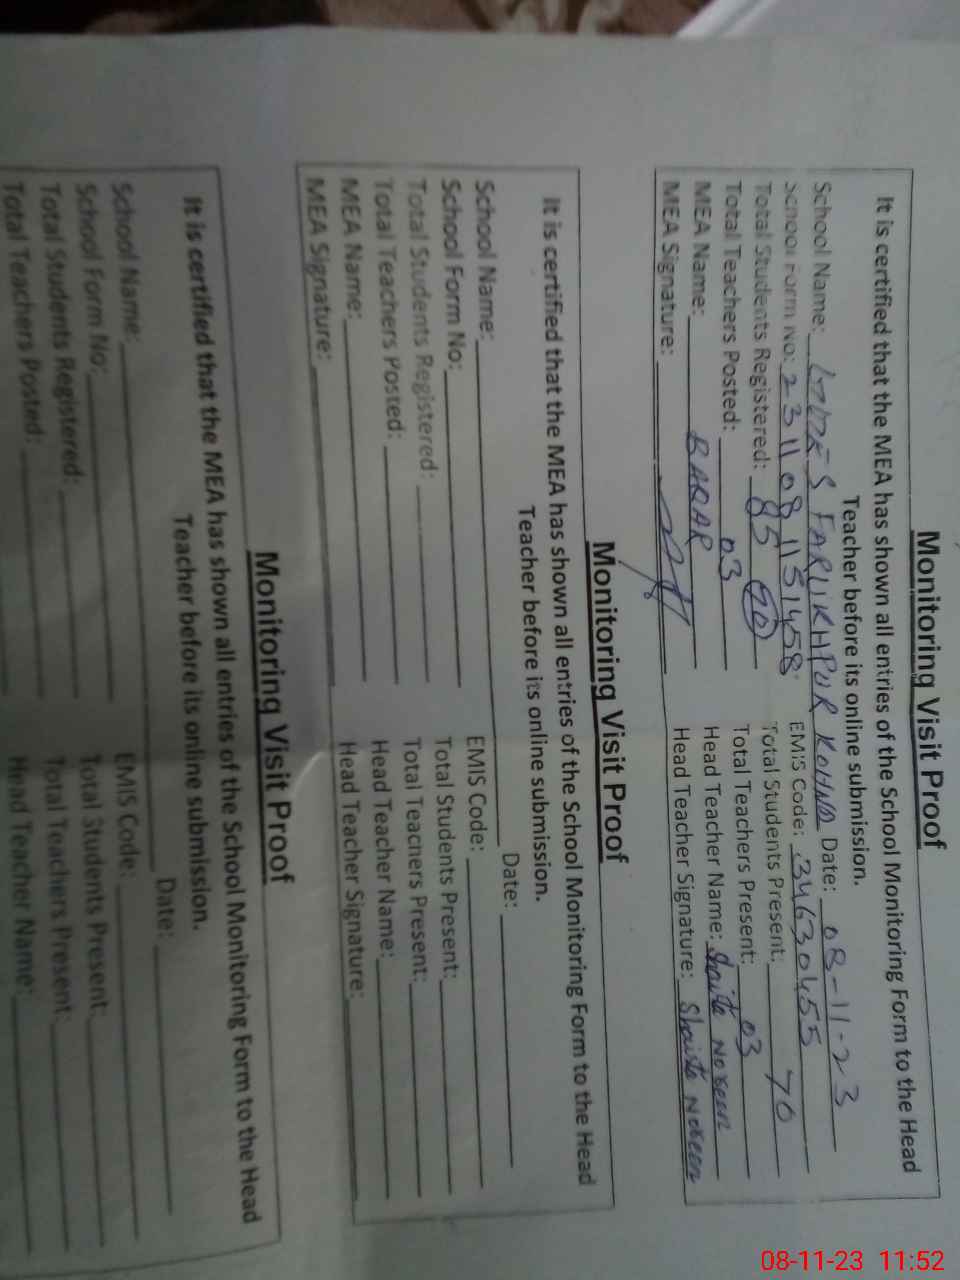 Monitoring Visit Proof
It is certified that the MEA has shown all entries of the School Monitoring Form to the Head
Teacher before its online submission.
School Name: FARUKHPUR KOHNA Date: 08-11-23
School Form No: 2311081151458 EMIS Code: 34630455
Total Students Registered: 85 70 Total Students Present: 70
Total Teachers Posted: 03 Total Teachers Present: 03
MEA Name: BABAR Head Teacher Name: Shaista Noreen
MEA Signature: Head Teacher Signature: Shaista Noreen
Monitoring Visit Proof
It is certified that the MEA has shown all entries of the School Monitoring Form to the Head
Teacher before its online submission.
School Name: Date:
School Form No: EMIS Code:
Total Students Registered: Total Students Present:
Total Teachers Posted: Total Teachers Present:
MEA Name: Head Teacher Name:
MEA Signature: Head Teacher Signature:
Monitoring Visit Proof
It is certified that the MEA has shown all entries of the School Monitoring Form to the Head
Teacher before its online submission.
School Name: Date:
School Form No: EMIS Code:
Total Students Registered: Total Students Present:
Total Teachers Posted: Total Teachers Present:
Head Teacher Name:
08-11-23 11:52